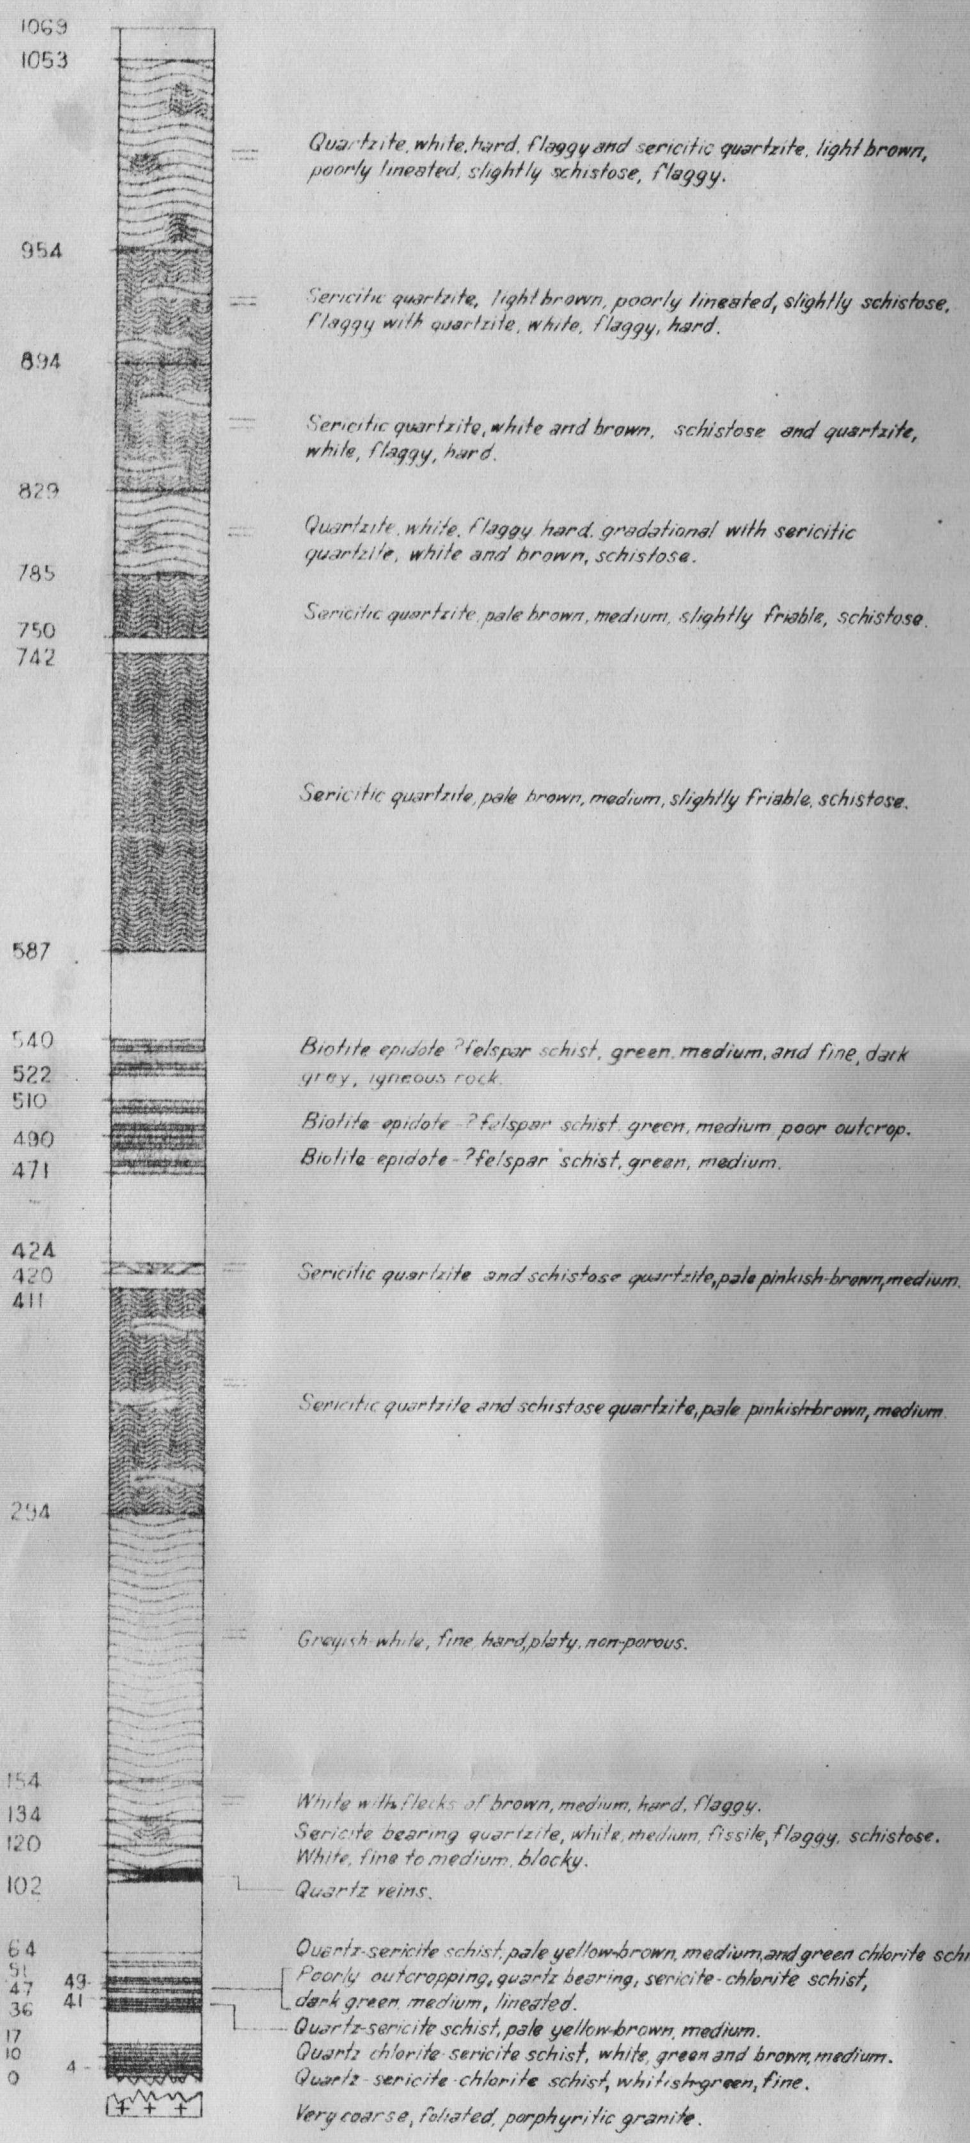 1069
1053
Quartzite, white, hard, flaggy and sericitic quartzite, light brown,
poorly lineated, slightly schistose, flaggy.
954
Sericitic quartzite, light brown, poorly lineated, slightly schistose,
flaggy with quartzite, white, flaggy, hard.
894
Sericitic quartzite, white and brown, schistose and quartzite,
white, flaggy, hard.
829
Quartzite, white, flaggy hard, gradational with sericitic
quartzite, white and brown, schistose.
785
Sericitic quartzite, pale brown, medium, slightly friable, schistose.
750
742
Sericitic quartzite, pale brown, medium, slightly friable, schistose.
587
540
Biotite epidote ?felspar schist, green, medium, and fine, dark
grey, igneous rock.
522
510
Biotite-epidote-?felspar schist green, medium poor outcrop.
490
Biotite-epidote-?felspar schist, green, medium.
471
424
420
Sericitic quartzite and schistose quartzite, pale pinkish-brown, medium.
411
Sericitic quartzite and schistose quartzite, pale pinkish-brown, medium.
294
Greyish-white, fine, hard, platy, non-porous.
154
White with flecks of brown, medium, hard, flaggy.
134
Sericite bearing quartzite, white, medium, fissile, flaggy, schistose.
120
White, fine to medium, blocky.
102
Quartz veins.
64
Quartz-sericite schist, pale yellow-brown, medium, and green chlorite schi
51
49
Poorly outcropping, quartz bearing, sericite-chlorite schist,
47
41
dark green, medium, lineated.
36
Quartz-sericite schist, pale yellow-brown, medium.
17
10
Quartz chlorite-sericite schist, white, green and brown, medium.
4
0
Quartz-sericite-chlorite schist, whitish-green, fine.
Very coarse, foliated, porphyritic granite.